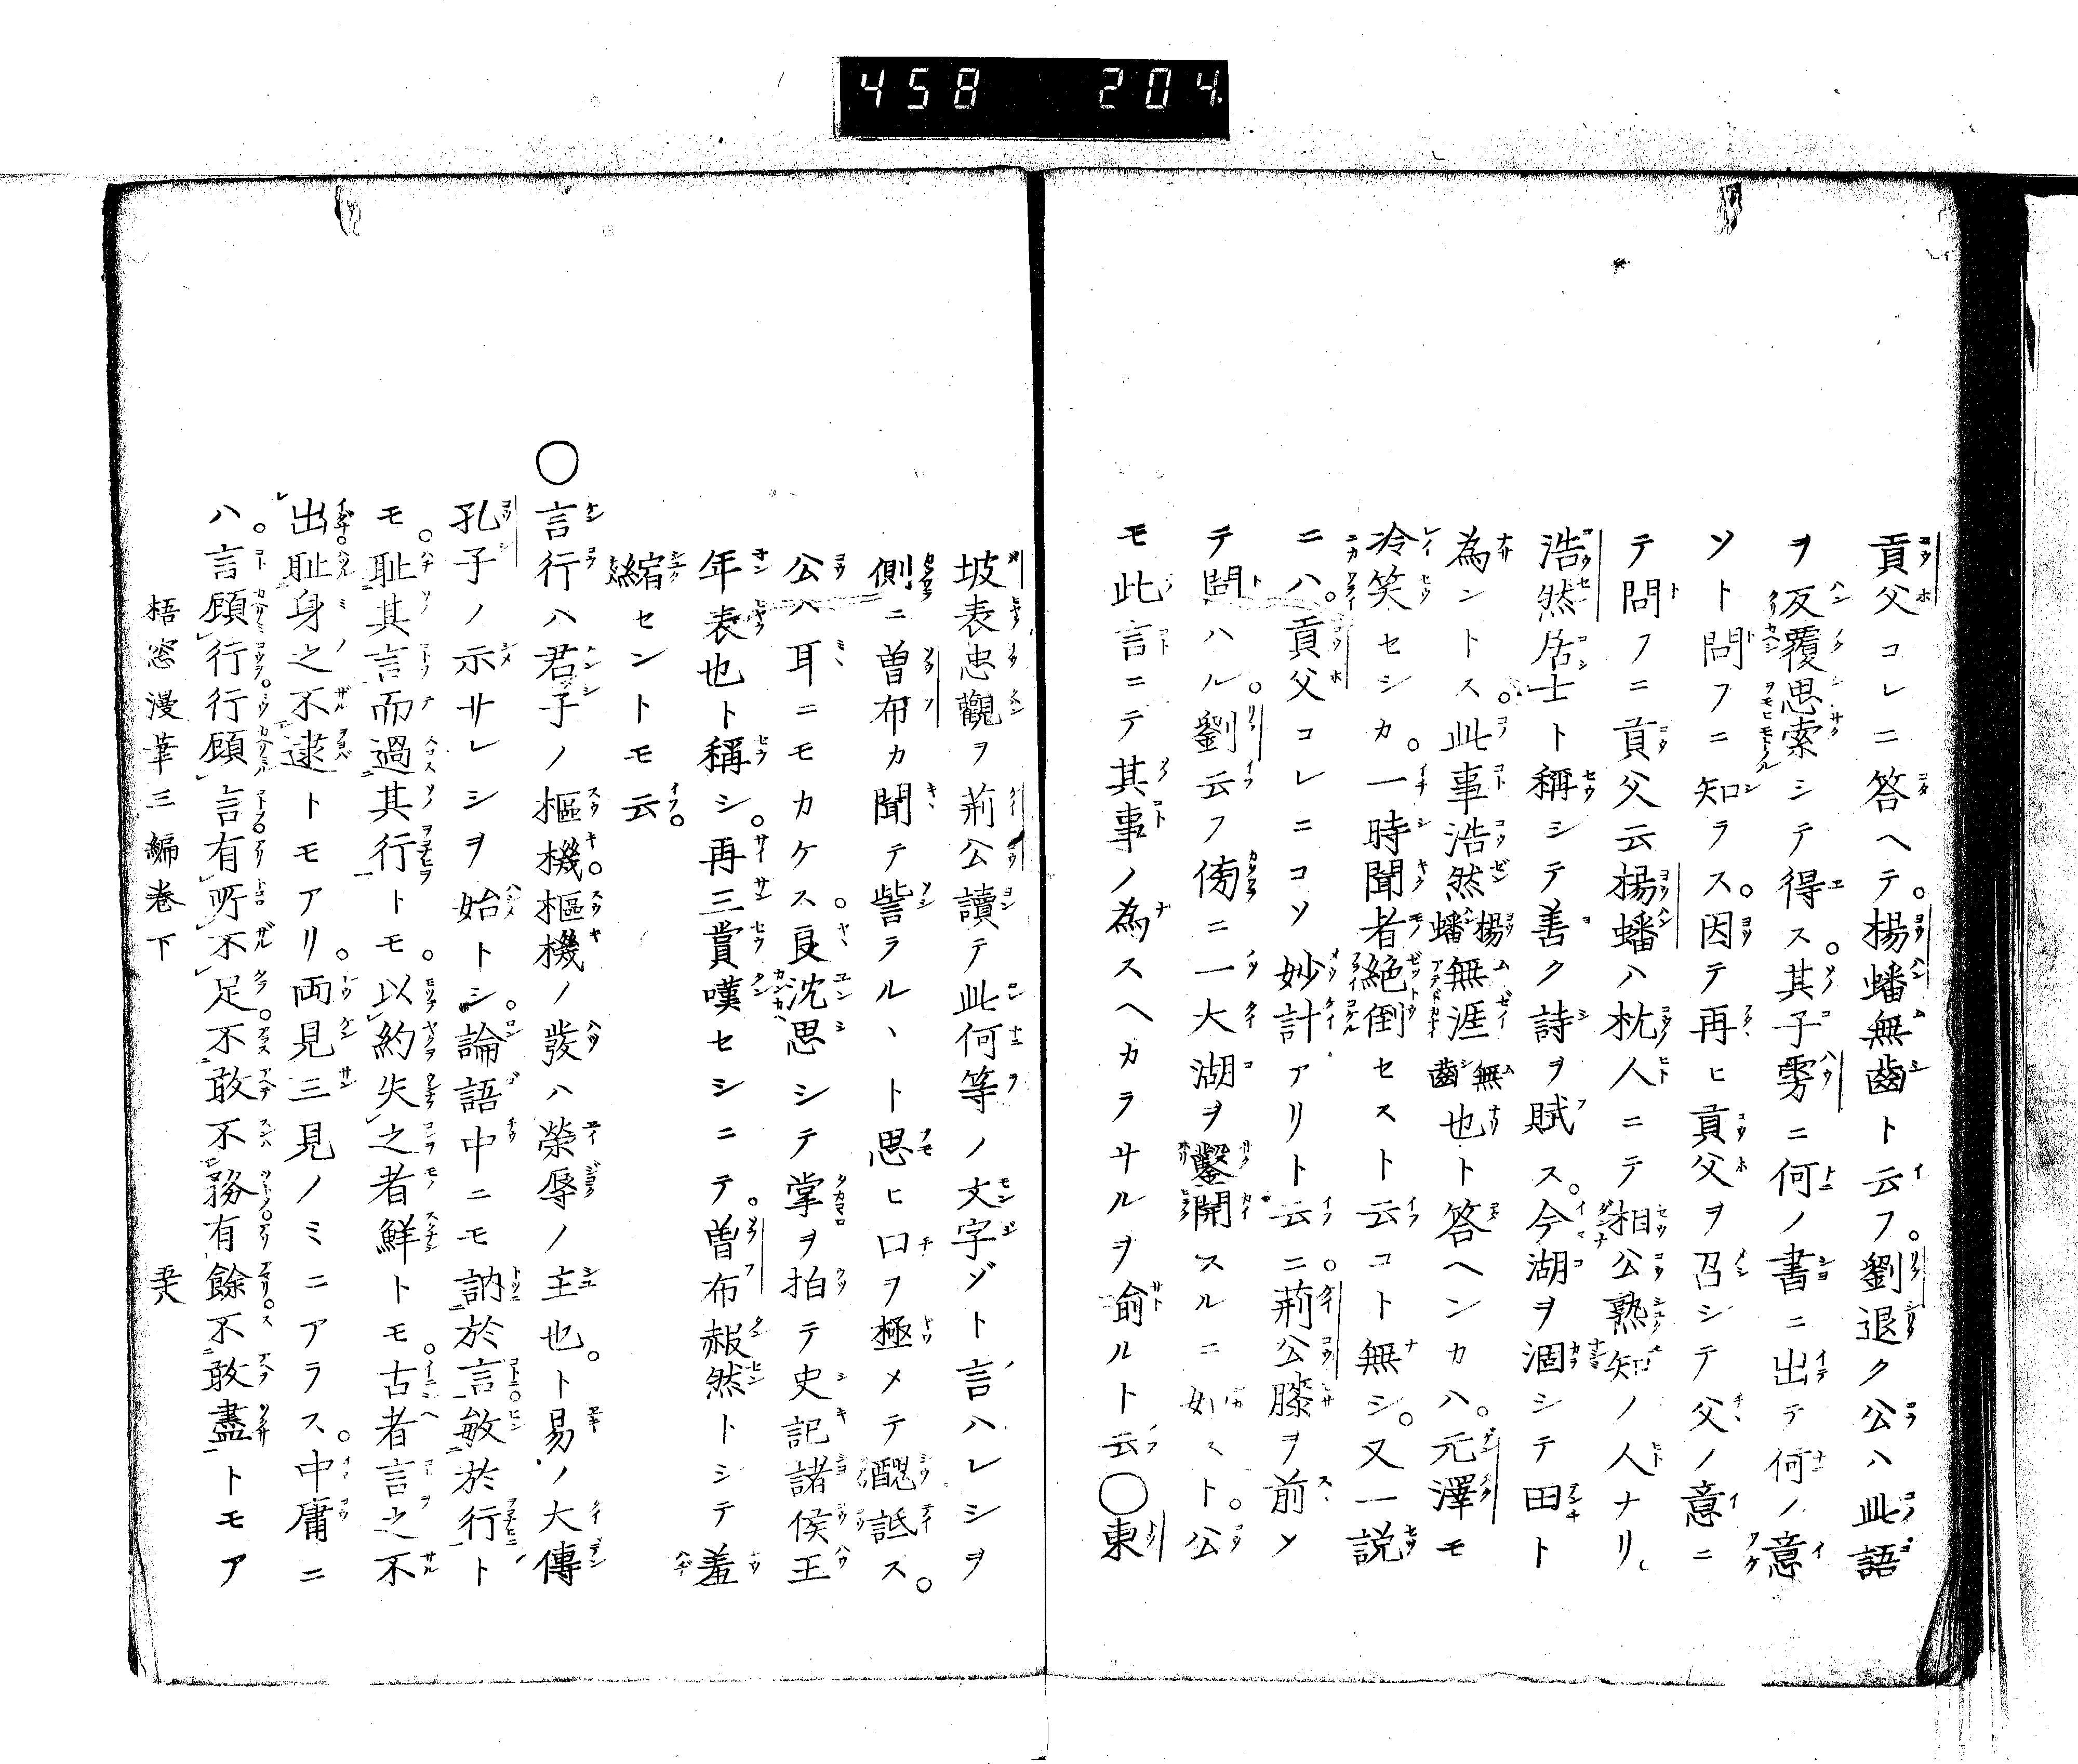 458 204.
貢父コレニ答ヘテ。楊蟠無齒ト云フ。劉退ク公ハ此語
ヲ反覆思索シテ得ス。其子雱ニ何ノ書ニ出テ何ノ意
ソト問フニ知ラス。因テ再ヒ貢父ヲ召シテ父ノ意ニ
テ問フニ貢父云楊蟠ハ杭人ニテ相公熟知ノ人ナリ
浩然居士ト稱シテ善ク詩ヲ賦ス。今湖ヲ涸シテ田ト
為ントス。此事浩然楊蟠無涯無齒也ト答ヘンカハ。元澤モ
冷笑セシカ。一時聞者絶倒セスト云コト無シ。又一説
ニハ。貢父コレニコソ妙計アリト云ニ。荊公膝ヲ前メ
テ問ハル。劉云フ傍ニ一大湖ヲ鑿開スルニ如スト。公
モ此言ニテ其事ノ為スヘカラサルヲ俞ルト云〇東
坡表忠觀ヲ荊公讀テ此何等ノ文字ゾト言ハレシヲ
側ニ曽布カ聞テ訾ラルヽト思ヒ口ヲ極メテ醜詆ス。
公ハ耳ニモカケス。良沈思シテ掌ヲ拍テ史記諸侯王
年表也ト稱シ。再三賞嘆セシニテ。曽布赧然トシテ羞
縮セントモ云。
〇言行ハ君子ノ樞機。樞機ノ發ハ榮辱ノ主也。ト易ノ大傳
孔子ノ示サレシヲ始トシ。論語中ニモ訥於言敏於行ト
モ。耻其言而過其行トモ。以約失之者鮮トモ。古者言之不
出耻身之不逮トモアリ。両見三見ノミニアラス。中庸ニ
ハ。言顧行行顧言有所不足不敢不務有餘不敢盡トモア
梧窓漫筆三編巻下